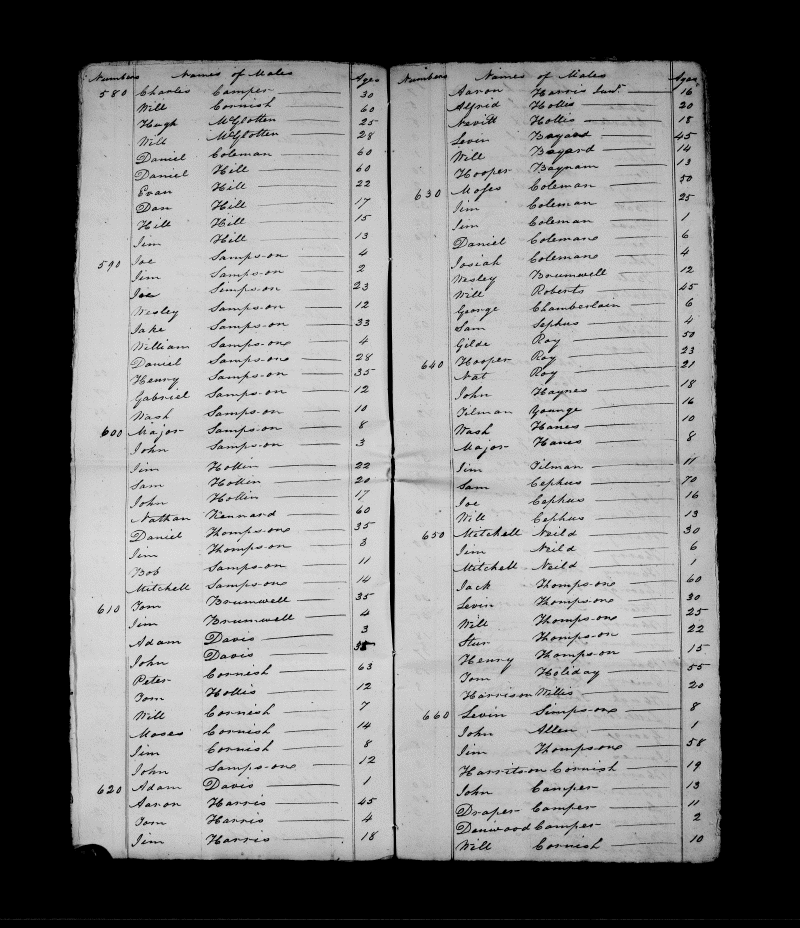 Numbers Names of Males Ages
580 Charles Camper 30
Will Cornish 60
Hugh McGlotten 25
Will McGlotten 28
Daniel Coleman 60
Daniel Hill 60
Evan Hill 22
Dan Hill 17
Hill Hill 15
Jim Hill 13
590 Joe Sampson 4
Jim Sampson 2
Joe Simpson 23
Wesley Sampson 12
Jake Sampson 33
William Sampsone 4
Daniel Sampsone 28
Henry Sampson 35
Gabriel Sampson 12
Wash Sampson 10
600 Major Sampson 8
John Sampson 3
Jim Hollin 22
Sam Hollin 20
John Hollin 17
Nathan Kennard 60
Daniel Thompsone 35
Jim Thompson 3
Bob Sampson 11
Mitchell Sampsone 14
610 Tom Brumwell 35
Jim Brumwell 4
Adam Davis 3
John Davis 35
Peter Cornish 63
Tom Hollis 12
Will Cornish 7
Moses Cornish 14
Jim Cornish 8
John Sampsone 12
620 Adam Davis 1
Aaron Harris 45
Tom Harris 4
Jim Harris 18
Numbers Names of Males Ages
Aaron Harris Junr. 16
Alfrid Hollis 20
Nevitt Hollis 18
Levin Bayard 45
Will Bayard 14
Hooper Baynam 13
630 Moses Coleman 50
Jim Coleman 25
Jim Coleman 1
Daniel Colemane 6
Josiah Colemane 4
Wesley Brumwell 12
Will Roberts 45
George Chamberlain 6
Sam Sephus 4
Gilde Roy 50
640 Hooper Roy 23
Nat Roy 21
John Haynes 18
Tilman Younge 16
Wash Hanes 10
Major Hanes 8
Jim Tilman 11
Sam Cephus 70
Joe Cephus 16
Will Cephus 13
650 Mitchell Neild 30
Jim Neild 6
Mitchell Neild 1
Jack Thompsone 60
Levin Thompsone 30
Will Thompsone 25
Stur Thompson 22
Henry Thompson 15
Tom Holiday 55
Harrison Willis 20
660 Levin Simpsone 8
John Allen 1
Jim Thompsone 58
Harritson Cornish 19
John Camper 13
Draper Camper 11
Denwood Camper 2
Will Cornish 10